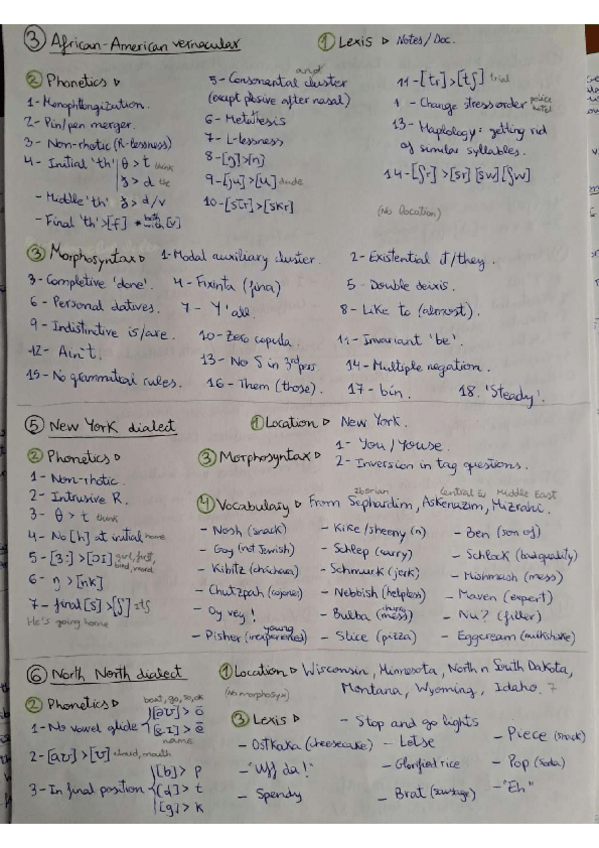 ③ African-American vernacular
① Lexis ▷ Notes/Doc.
② Phonetics ▷
1- Monophthongization.
2- Pin/pen merger.
3- Non-rhotic (R-lessness)
4- Initial 'th' θ > t think
ʒ > d the
- Middle 'th' ʒ > d/v
- Final 'th' > [f] * both with [v]
5- Consonantal cluster and
(except plosive after nasal)
6- Metathesis
7- L-lessness
8- [ŋ] > [n]
9- [ju] > [u] dude
10- [str] > [skr]
11- [tr] > [tʃ] trial
1 - Change stress order police hotel
13- Haplology: getting rid
of similar syllables.
14- [ʃr] > [sr] [sw] [ʃw]
(No location)
③ Morphosyntax ▷
1- Modal auxiliary cluster.
2- Existential it/they.
3- Completive 'done'.
4- Fixinta (fina)
5- Double deixis.
6- Personal datives.
7- Y'all.
8- Like to (almost).
9- Indistintive is/are.
10- Zero copula.
11- Invariant 'be'.
12- Ain't.
13- No S in 3rd pers.
14- Multiple negation.
15- No grammatical rules.
16- Them (those).
17- bin.
18. 'Steady'.
⑤ New York dialect
① Location ▷ New York.
② Phonetics ▷
1- Non-rhotic.
2- Intrusive R.
3- θ > t think
4- No [h] at initial home
5- [3:] > [ɔI] girl, first, bird, word
6- ŋ > [nk]
7- final [s] > [ʃ] its
He's going home
③ Morphosyntax ▷
1- You/Youse.
2- Inversion in tag questions.
④ Vocabulary ▷ From Sephardim, Askenazim, Mizrahi.
Central Middle East
- Nosh (snack)
- Goy (not Jewish)
- Kibitz (chichara)
- Chutzpah (cojones)
- Oy vey!
- Pisher (inexperienced) young
- Kike/sheeny (n)
- Schlep (carry)
- Schmuck (jerk)
- Nebbish (helpless)
- Bulba (mess)
- Slice (pizza)
- Ben (son of)
- Schlock (bad quality)
- Mishmash (mess)
- Maven (expert)
- Nu? (filler)
- Eggcream (milkshake)
⑥ North North dialect
① Location ▷ Wisconsin, Minnesota, North n South Dakota,
Montana, Wyoming, Idaho. 7
(No morphosyx)
② Phonetics ▷
boat, go, so, ok
1- No vowel glide [əʊ] > ō
[eI] > ē
name
2- [aʊ] > [ʊ] cloud, mouth
3- In final position [b] > p
[d] > t
[g] > k
③ Lexis ▷
- Ostkaka (cheesecake)
- "Uff da!"
- Spendy
- Stop and go lights
- Lefse
- Glorified rice
- Brat (sausage)
- Piece (snack)
- Pop (soda)
- "Eh"